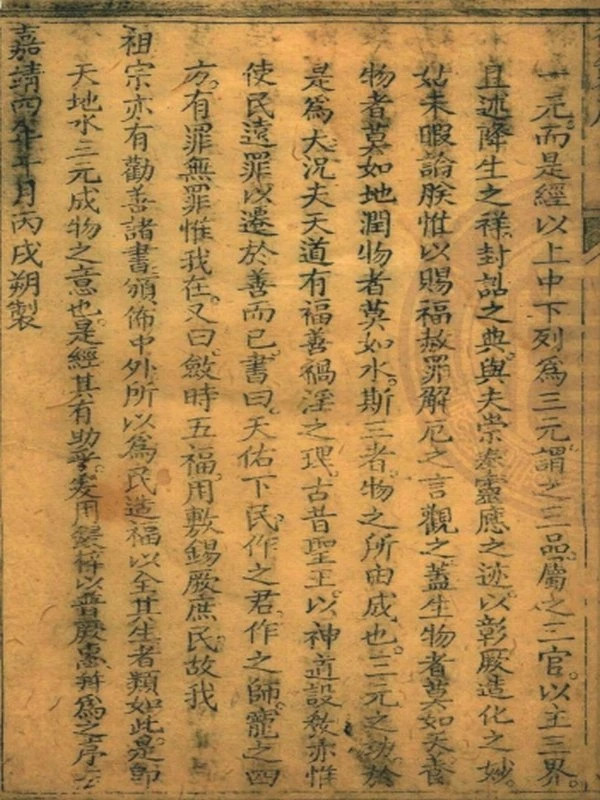 一元。而是經以上中下列爲三元。謂之三品。屬之三官。以主三界。
且述降生之祥。封誥之典。與夫崇奉靈應之迹。以彰厥造化之妙。
姑未暇論。朕惟以賜福赦罪解厄之言觀之。蓋生物者莫如天。養
物者莫如地。潤物者莫如水。斯三者。物之所由成也。三元之功。於
是爲大。況夫天道有福善禍淫之理。古昔聖王。以神道設教。亦惟
使民遠罪以遷於善而已。書曰。天佑下民。作之君。作之師。寵之四
方。有罪無罪惟我在。又曰。斂時五福。用敷錫厥庶民。故我
祖宗亦有勸善諸書。頒佈中外。所以爲民造福以全其生者類如此。是即
天地水三元成物之意也。是經其有助乎。爰用鋟梓以普厥惠。并爲之序
嘉靖四年 月丙戌朔製